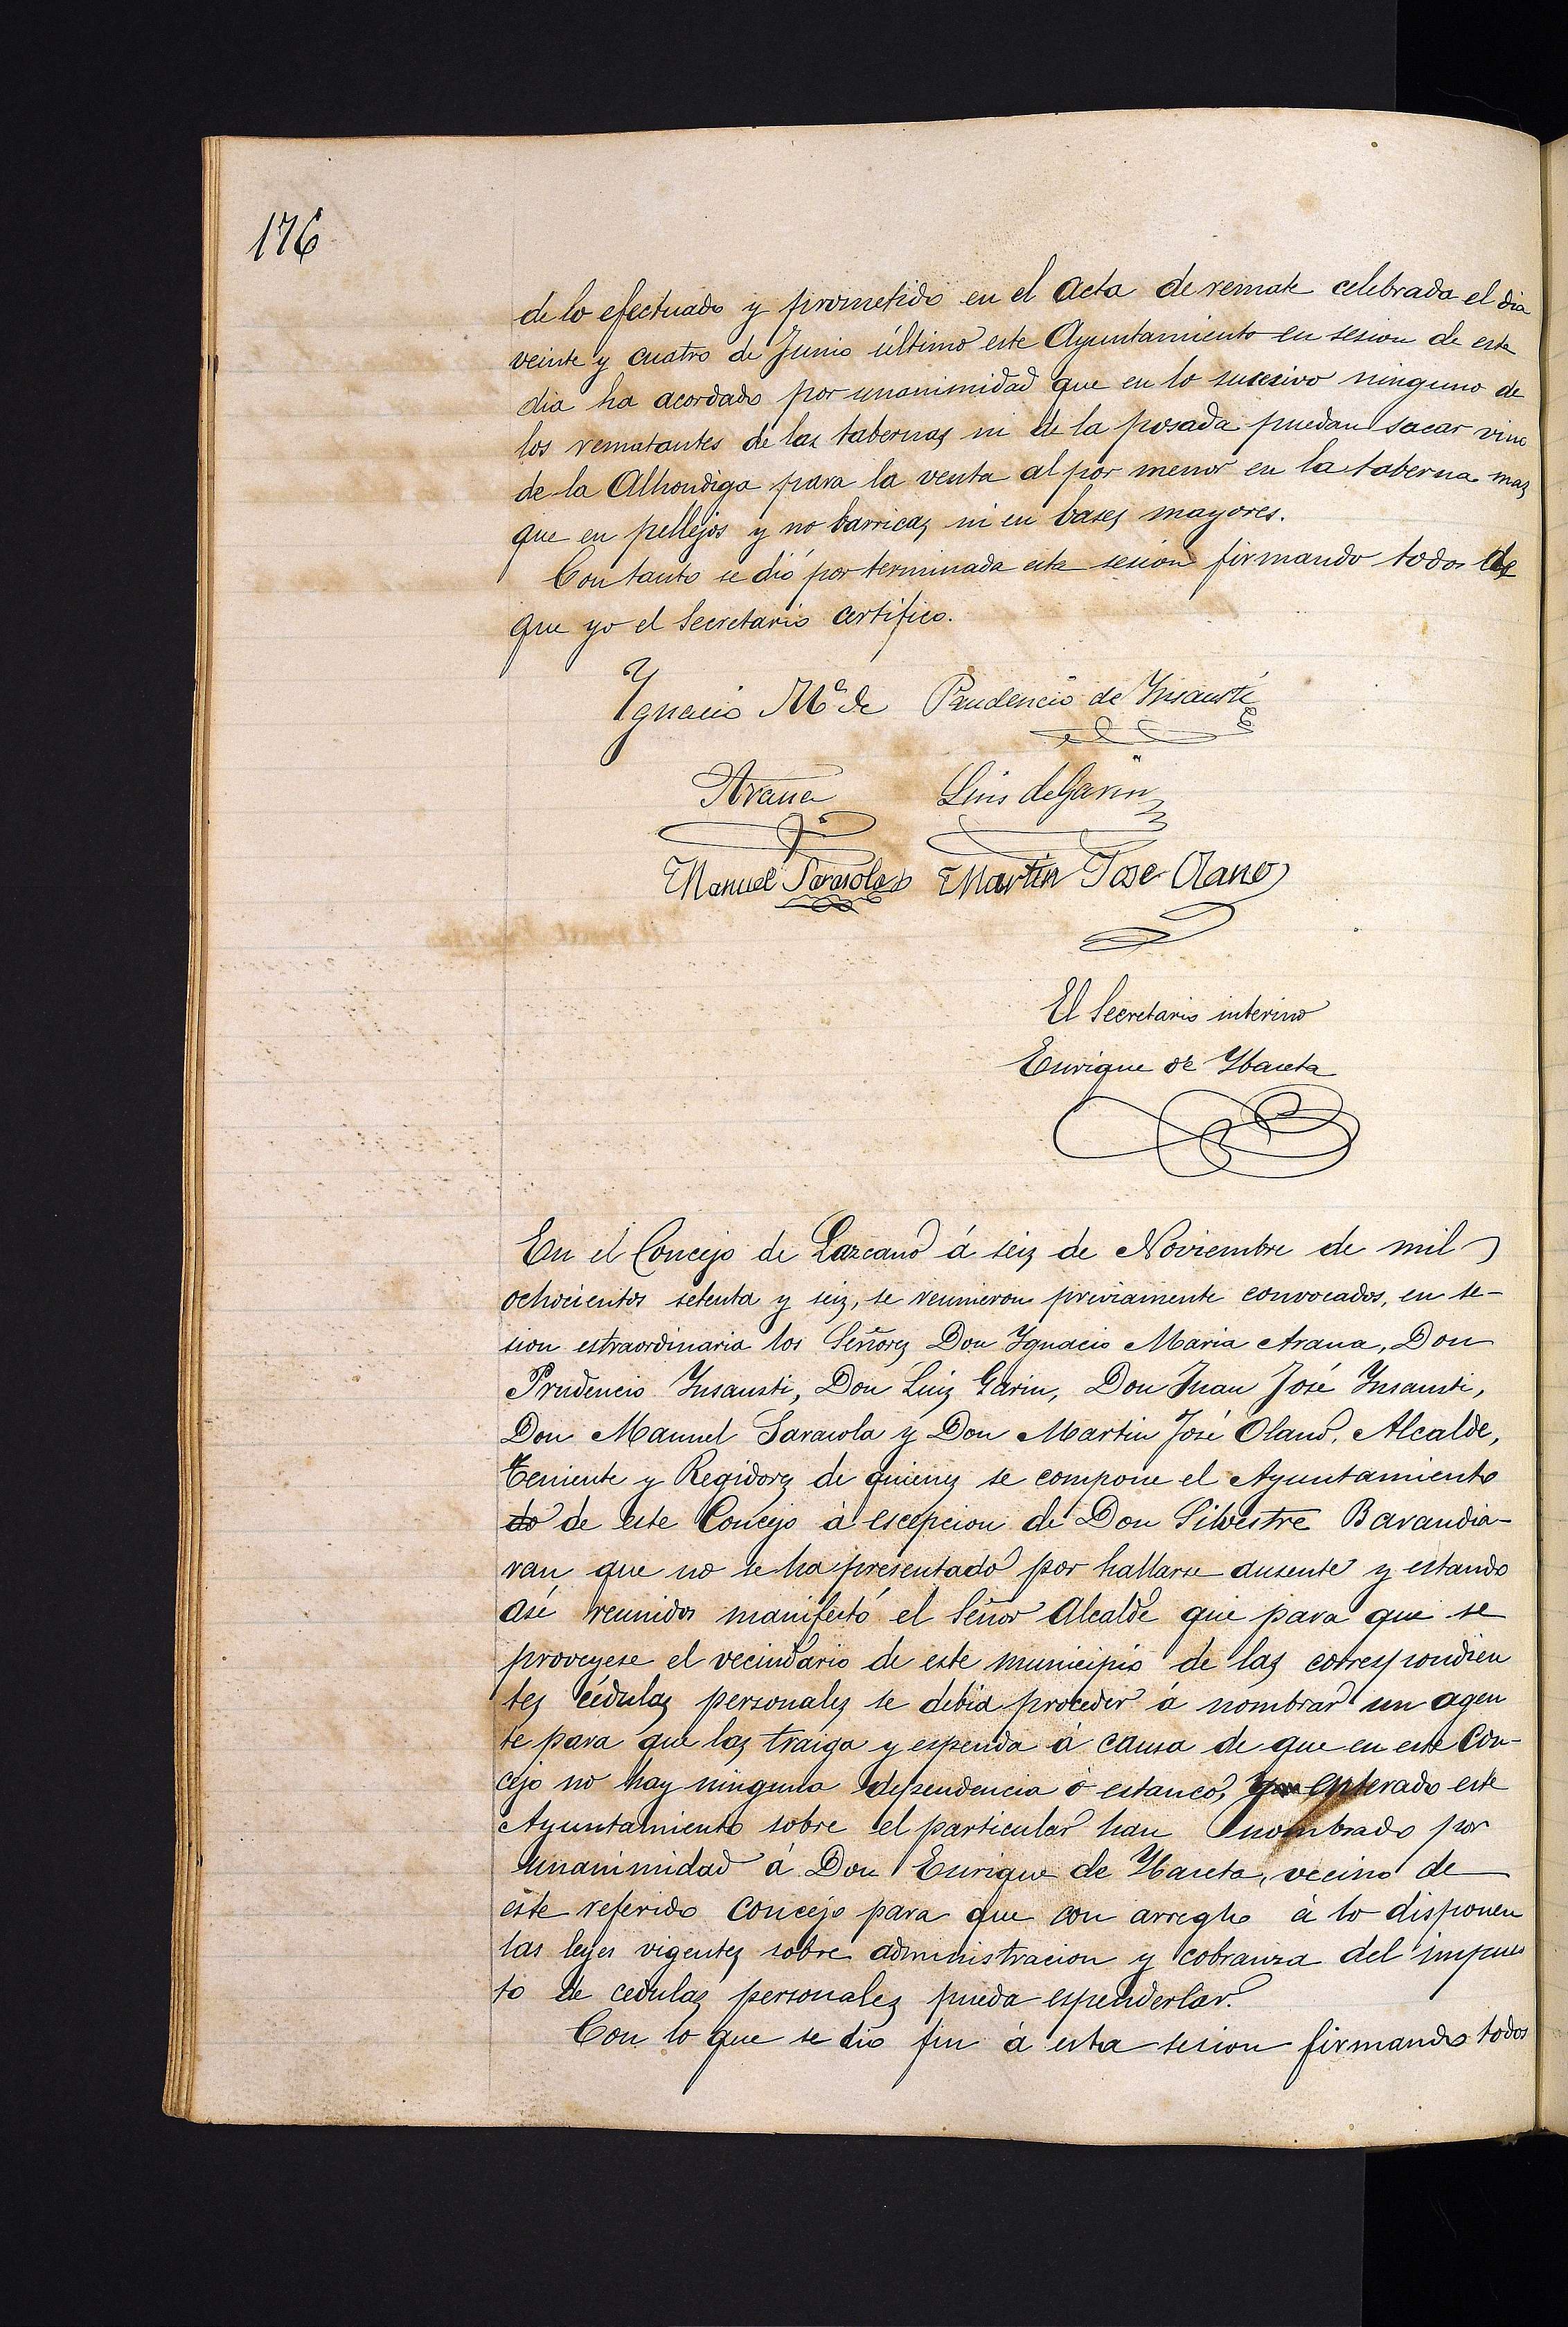 176
de lo efectuado y prometido en el Acta de remate celebrada el dia
veinte y cuatro de Junio último este Ayuntamiento en sesion de este
dia ha acordado por unanimidad que en lo sucesivo ninguno de
los rematantes de las tabernas ni de la posada puedan sacar vino
de la Alhondiga para la venta al por menor en la taberna mas
que en pellejos y no barricas ni en bases mayores.
Con tanto se dió por terminada esta sesion firmando todos de
que yo el Secretario certifico.
Ygnacio Mª de Prudencio de Ynsausti
Arana Luis de Garin
Manuel Sarasola Martin Jose Olano
El Secretario interino
Enrique de Ybaceta
En el Concejo de Lazcano á seis de Noviembre de mil
ochocientos setenta y seis, se reunieron previamente convocados, en se-
sion estraordinaria los Señores Don Ygnacio Maria Arana, Don
Prudencio Ynsausti, Don Luis Garin, Don Juan José Ynsausti,
Don Manuel Sarasola y Don Martin José Olano, Alcalde,
Teniente y Regidores de quienes se compone el Ayuntamiento
do de este Concejo á escepcion de Don Silvestre Barandia-
ran que no se ha presentado por hallarse ausente y estando
asi reunidos manifestó el Señor Alcalde que para que se
proveyese el vecindario de este municipio de las correspondien
tes cédulas personales se debia proceder á nombrar un agen
te para que las traiga y espenda á causa de que en este Con-
cejo no hay ninguna dependencia ó estanco, enterado este
Ayuntamiento sobre el particular han nombrado por
unanimidad á Don Enrique de Ybaceta, vecino de
este referido concejo para que con arreglo á lo disponen
las leyes vigentes sobre administracion y cobranza del impues
to de cedulas personales pueda espenderlas.
Con lo que se dio fin á esta sesion firmando todos